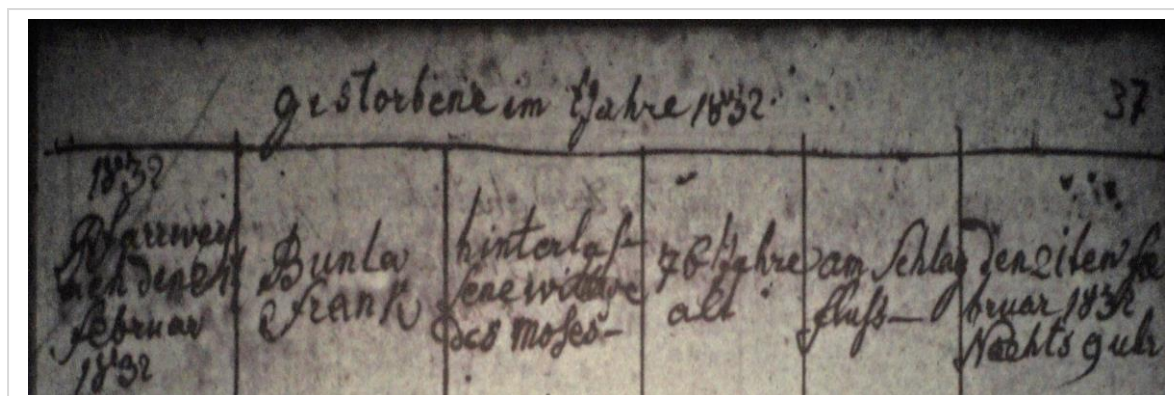 gestorbene im Jahre 1832
37
1832
Pfarrwey
den 21
februar
1832
Bunla
Frank
hinterlas-
sene wittwe
des Moses-
76 Jahre
alt
am Schlag
fluss-
Den 21ten fe
bruar 1832
Nachts 9 uhr